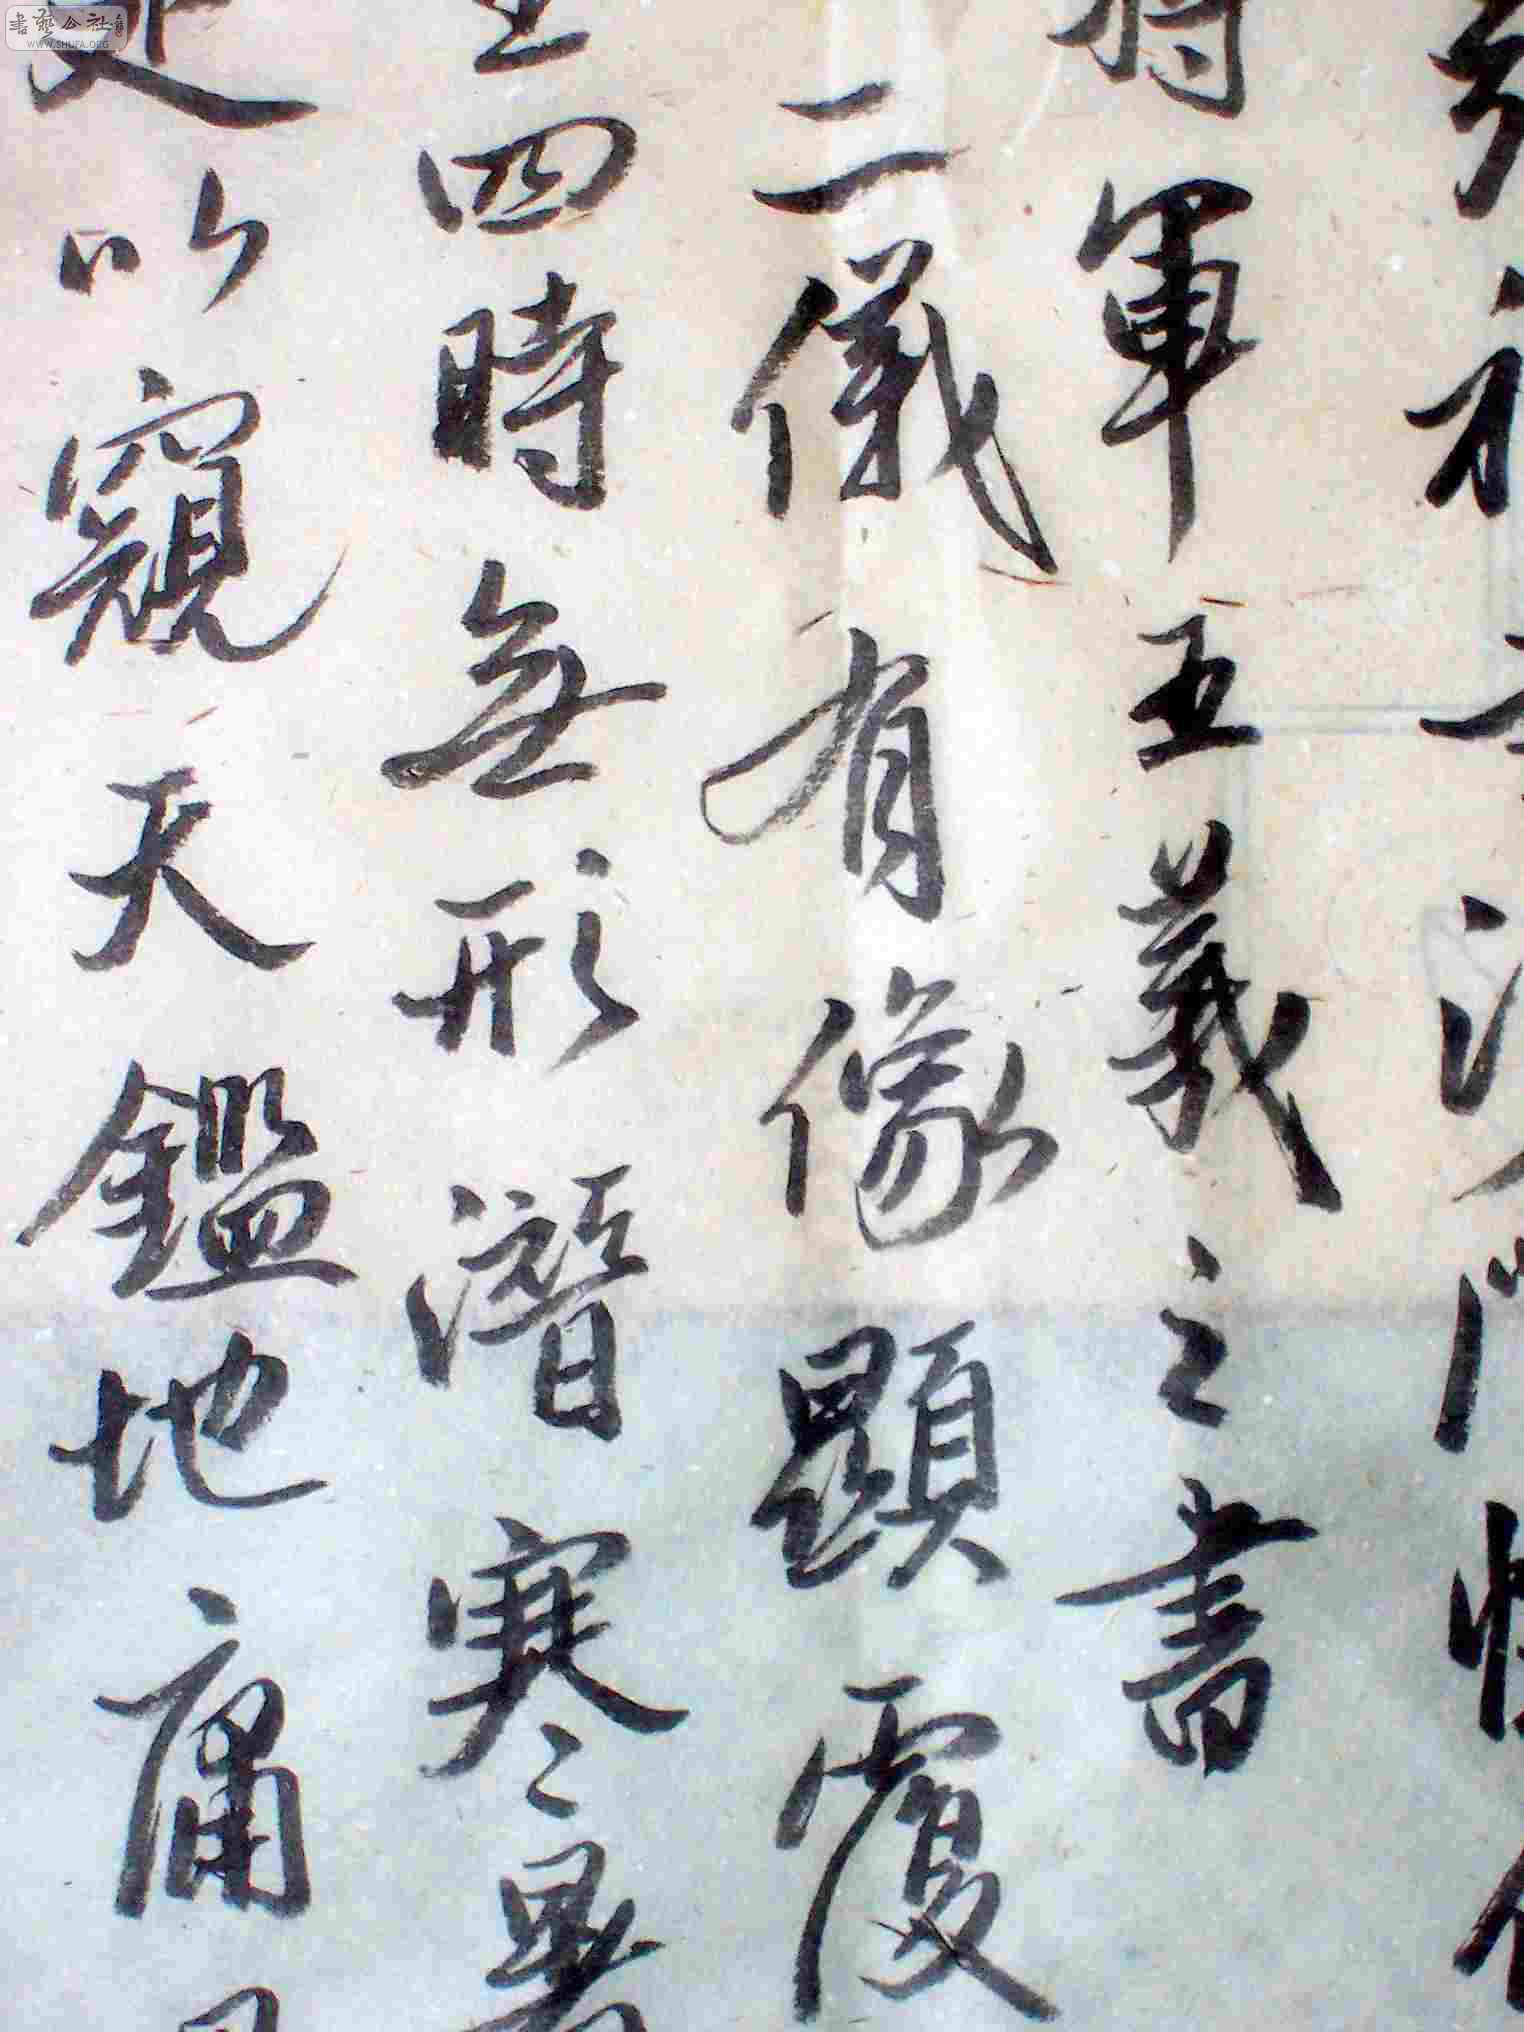 將軍王羲之書
二儀有像顯覆
四時無形潛寒暑
是以窺天鑑地庸
書藝公社
WWW.SHUFA.ORG